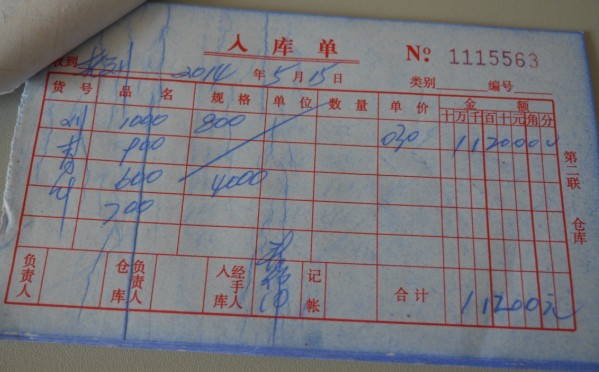 入库单 № 1115563
收到 2014年5月15日 类别 编号
货号 品名 规格 单位 数量 单价 金额
十万千百十元角分
1000 800 030 112000
900
600 4000
700
第二联 仓库
负责人 仓库负责人 入库经手人 记帐 合计 11200元